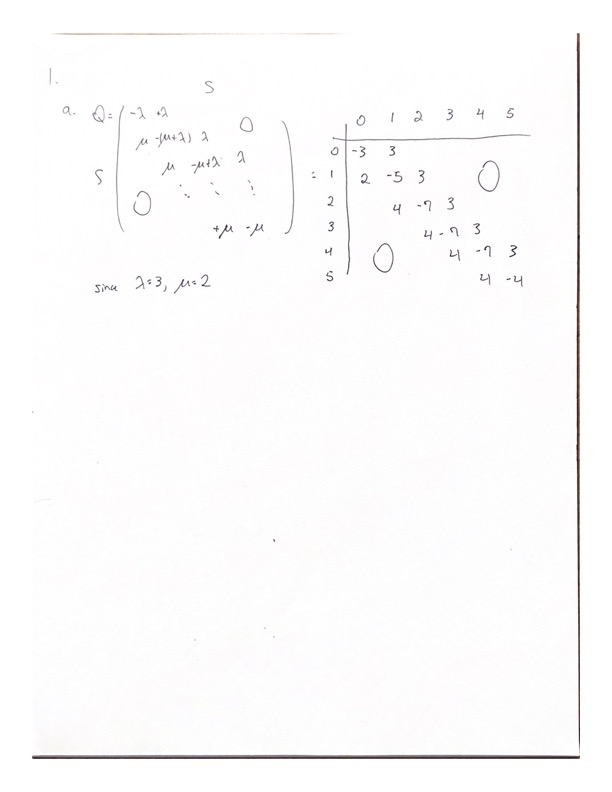 1.
S
a. Q = ( -λ +λ
μ -(μ+λ) λ 0
μ -μ+λ λ
S 0 ⋱ ⋱ ⋮
+μ -μ )
= 0 1 2 3 4 5
0 -3 3
1 2 -5 3 0
2 4 -7 3
3 4 -7 3
4 0 4 -7 3
5 4 -4
since λ=3, μ=2